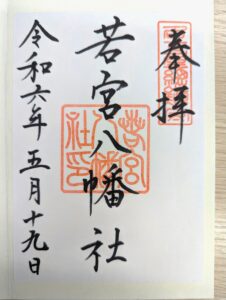 奉拝
若宮八幡社
若宮八幡社印
令和六年五月十九日